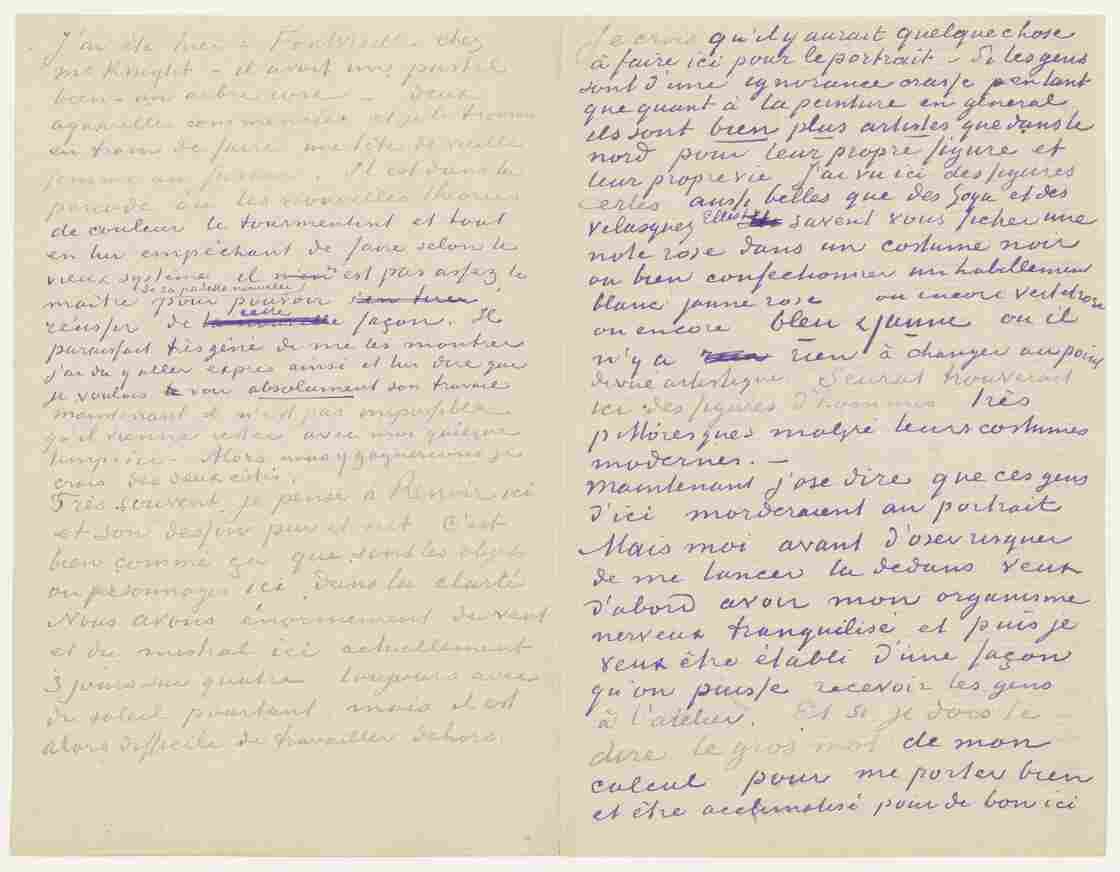 J'ai été hier à Fontvieille chez
Mc Knight – il avait un pastel
bien – un arbre rose – deux
aquarelles commencées et je le trouvai
en train de faire une tête de vieille
femme au fusain. Il est dans la
periode où les nouvelles théories
de couleur le tourmentent et tout
en lui empêchant de faire selon le
vieux système il n'est pas assez le
maitre de sa palette nouvelle pour pouvoir s'en tirer
reussir de cette façon. Il
paraissait très gêné de me les montrer
j'ai du y aller exprès ainsi et lui dire que
je voulais voir absolument son travail
maintenant il n'est pas impossible
qu'il vienne rester avec moi quelque
temps ici – Alors nous y gagnerions je
crois des deux côtés.
Très souvent je pense à Renoir ici
et son dessin pur et net C'est
bien comme ça que sont les objets
ou personnages ici dans la clarté
Nous avons énormement du vent
et du mistral ici actuellement
3 jours sur quatre toujours avec
du soleil pourtant, mais il est
alors difficile de travailler dehors.
Je crois qu'il y aurait quelquechose
à faire ici pour le portrait – Si les gens
sont d'une ignorance crasse pourtant
que quant à la peinture en général
ils sont bien plus artistes que dans le
nord pour leur propre figure et
leur propre vie J'ai vu ici des figures
certes aussi belles que des Goya et des
Velasquez Elles savent vous ficher une
note rose dans un costume noir
ou bien confectionner un habillement
blanc jaune rose ou encore vert et rose
ou encore bleu & jaune ou il
n'y a rien à changer au point
de vue artistique. Seurat trouverait
ici des figures d'hommes très
pittoresques malgré leurs costumes
modernes. –
Maintenant j'ose dire que ces gens
d'ici morderaient au portrait
Mais moi avant d'oser risquer
de me lancer la dedans veux
d'abord avoir mon organisme
nerveux tranquilisé et puis je
veux être établi d'une façon
qu'on puisse recevoir les gens
à l'atelier. Et si je dois te
dire le gros mot de mon
calcul pour me porter bien
et être acclimatisé pour de bon ici